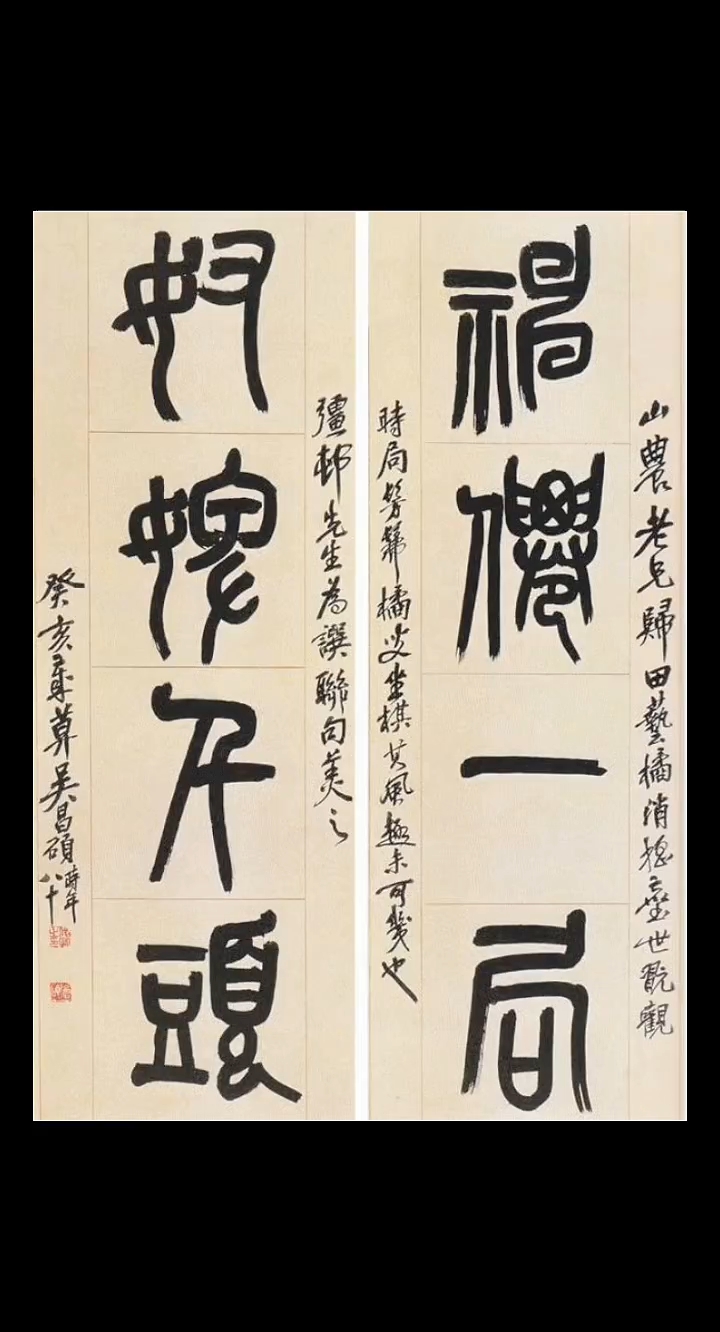 山農老兄歸田藝橘消搖塵世翫觀
神僊一局
時局髣髴橘叟坐棋其風趣未可幾也
彊邨先生為譔聯句美之
奴嫁千頭
癸亥吳昌碩時年八十